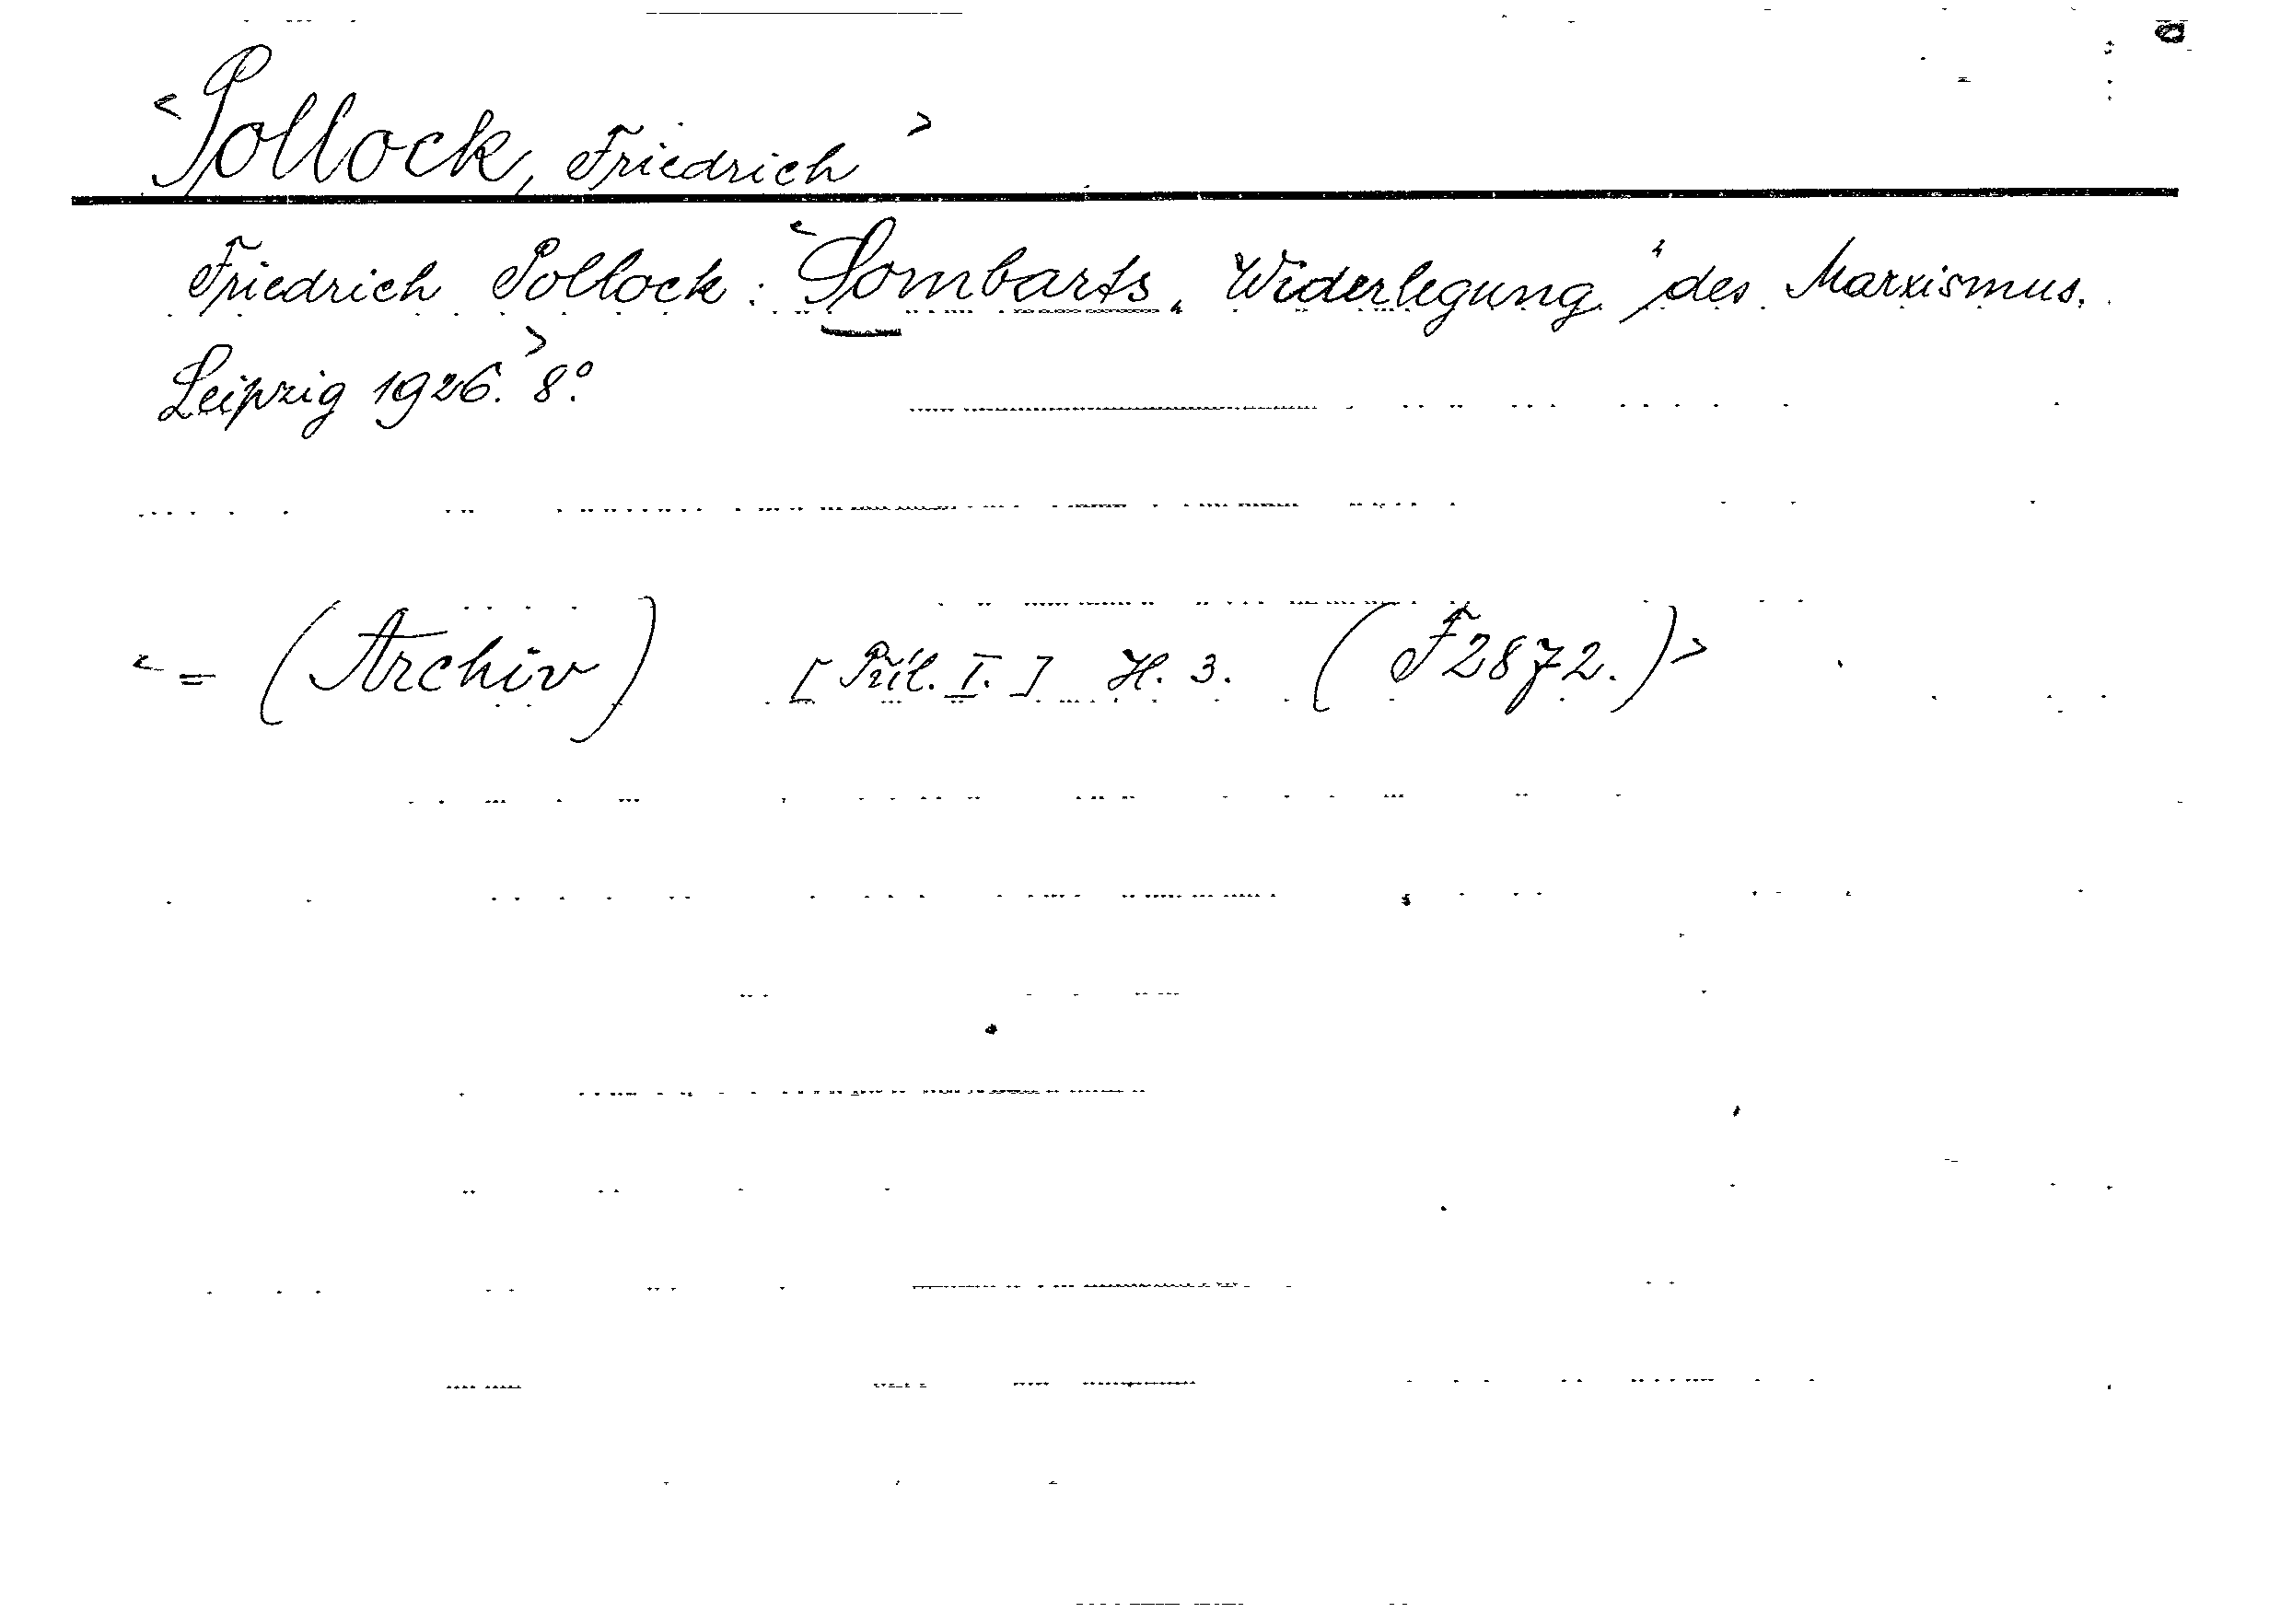 <Pollock, Friedrich>
Friedrich Pollock: <Sombarts „Widerlegung“ des Marxismus.
Leipzig 1926.> 8°.
<= (Archiv) [Příl. I.] H. 3. (F2872.)>